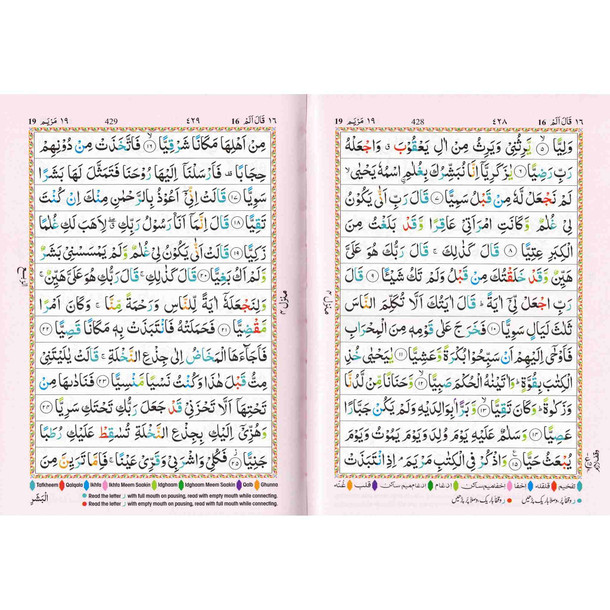 ١٦ قَالَ اَلَمْ 16 ٤٢٨ 428 ١٩ مَرْيَم 19
وَلِيًّا ۙ﴿٥﴾ يَّرِثُنِيْ وَيَرِثُ مِنْ اٰلِ يَعْقُوْبَ ۖ وَاجْعَلْهُ
رَبِّ رَضِيًّا ﴿٦﴾ يٰزَكَرِيَّاۤ اِنَّا نُبَشِّرُكَ بِغُلٰمِ ۨاسْمُهٗ يَحْيٰى ۙ
لَمْ نَجْعَلْ لَّهٗ مِنْ قَبْلُ سَمِيًّا ﴿٧﴾ قَالَ رَبِّ اَنّٰى يَكُوْنُ
لِيْ غُلٰمٌ وَّكَانَتِ امْرَاَتِيْ عَاقِرًا وَّقَدْ بَلَغْتُ مِنَ
الْكِبَرِ عِتِيًّا ﴿٨﴾ قَالَ كَذٰلِكَ ۚ قَالَ رَبُّكَ هُوَ عَلَيَّ
هَيِّنٌ وَّقَدْ خَلَقْتُكَ مِنْ قَبْلُ وَلَمْ تَكُ شَيْـًٔا ﴿٩﴾ قَالَ
رَبِّ اجْعَلْ لِّيْۤ اٰيَةً ؕ قَالَ اٰيَتُكَ اَلَّا تُكَلِّمَ النَّاسَ
ثَلٰثَ لَيَالٍ سَوِيًّا ﴿١٠﴾ فَخَرَجَ عَلٰى قَوْمِهٖ مِنَ الْمِحْرَابِ
فَاَوْحٰۤى اِلَيْهِمْ اَنْ سَبِّحُوْا بُكْرَةً وَّعَشِيًّا ﴿١١﴾ يٰيَحْيٰى خُذِ
الْكِتٰبَ بِقُوَّةٍ ؕ وَاٰتَيْنٰهُ الْحُكْمَ صَبِيًّا ۙ﴿١٢﴾ وَّحَنَانًا مِّنْ لَّدُنَّا
وَزَكٰوةً ؕ وَكَانَ تَقِيًّا ۙ﴿١٣﴾ وَّبَرًّۢا بِوَالِدَيْهِ وَلَمْ يَكُنْ جَبَّارًا
عَصِيًّا ﴿١٤﴾ وَسَلٰمٌ عَلَيْهِ يَوْمَ وُلِدَ وَيَوْمَ يَمُوْتُ وَيَوْمَ
يُبْعَثُ حَيًّا ﴿١٥﴾ وَاذْكُرْ فِي الْكِتٰبِ مَرْيَمَ ۘ اِذِ انْتَبَذَتْ
تفخیم قلقلہ اخفا اخفا میم ساکن ادغام ادغام میم ساکن قلب غنہ
١٦ قَالَ اَلَمْ 16 ٤٢٩ 429 ١٩ مَرْيَم 19
مِنْ اَهْلِهَا مَكَانًا شَرْقِيًّا ۙ﴿١٦﴾ فَاتَّخَذَتْ مِنْ دُوْنِهِمْ
حِجَابًا ۪ۛ فَاَرْسَلْنَاۤ اِلَيْهَا رُوْحَنَا فَتَمَثَّلَ لَهَا بَشَرًا
سَوِيًّا ﴿١٧﴾ قَالَتْ اِنِّيْۤ اَعُوْذُ بِالرَّحْمٰنِ مِنْكَ اِنْ كُنْتَ
تَقِيًّا ﴿١٨﴾ قَالَ اِنَّمَاۤ اَنَا رَسُوْلُ رَبِّكِ ۖ لِاَهَبَ لَكِ غُلٰمًا
زَكِيًّا ﴿١٩﴾ قَالَتْ اَنّٰى يَكُوْنُ لِيْ غُلٰمٌ وَّلَمْ يَمْسَسْنِيْ بَشَرٌ
وَّلَمْ اَكُ بَغِيًّا ﴿٢٠﴾ قَالَ كَذٰلِكِ ۚ قَالَ رَبُّكِ هُوَ عَلَيَّ هَيِّنٌ ۚ
وَلِنَجْعَلَهٗۤ اٰيَةً لِّلنَّاسِ وَرَحْمَةً مِّنَّا ۚ وَكَانَ اَمْرًا
مَّقْضِيًّا ﴿٢١﴾ فَحَمَلَتْهُ فَانْتَبَذَتْ بِهٖ مَكَانًا قَصِيًّا ﴿٢٢﴾
فَاَجَآءَهَا الْمَخَاضُ اِلٰى جِذْعِ النَّخْلَةِ ۚ قَالَتْ يٰلَيْتَنِيْ
مِتُّ قَبْلَ هٰذَا وَكُنْتُ نَسْيًا مَّنْسِيًّا ﴿٢٣﴾ فَنَادٰىهَا مِنْ
تَحْتِهَاۤ اَلَّا تَحْزَنِيْ قَدْ جَعَلَ رَبُّكِ تَحْتَكِ سَرِيًّا ﴿٢٤﴾
وَهُزِّيْۤ اِلَيْكِ بِجِذْعِ النَّخْلَةِ تُسٰقِطْ عَلَيْكِ رُطَبًا
جَنِيًّا ﴿٢٥﴾ فَكُلِيْ وَاشْرَبِيْ وَقَرِّيْ عَيْنًا ۚ فَاِمَّا تَرَيِنَّ مِنَ
Tafkheem Qalqala Ikhfa Ikhfa Meem Saakin Idghaam Idghaam Meem Saakin Qalb Ghunna
الْبَشَرِ
Read the letter ر with full mouth on pausing, read with empty mouth while connecting.
Read the letter ر with empty mouth on pausing, read with full mouth while connecting.